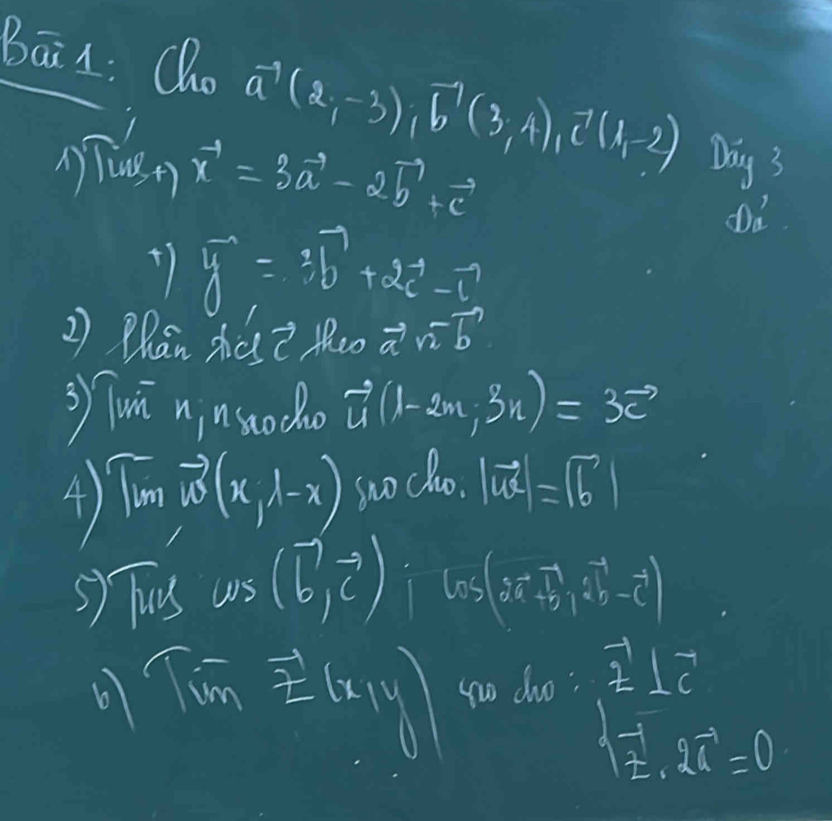 Bài 1: Cho a⃗(2;-3); b⃗(3;4), c⃗(1,-2) Dãy 3
1) Tính +) x⃗ = 3a⃗ - 2b⃗ + c⃗
+) y⃗ = 3b⃗ + 2c⃗ - c⃗
2) Phân tích c⃗ theo a⃗ và b⃗
3) Tìm n; n sao cho u⃗(1-2m; 3n) = 3c⃗
4) Tìm w⃗(x; 1-x) sao cho. |w⃗| = |b⃗|
5) Tính cos(b⃗, c⃗); cos(2a⃗+b⃗; 2b⃗-c⃗)
6) Tìm z⃗(x,y) sao cho: z⃗ ⊥ c⃗
{z⃗ . 2a⃗ = 0